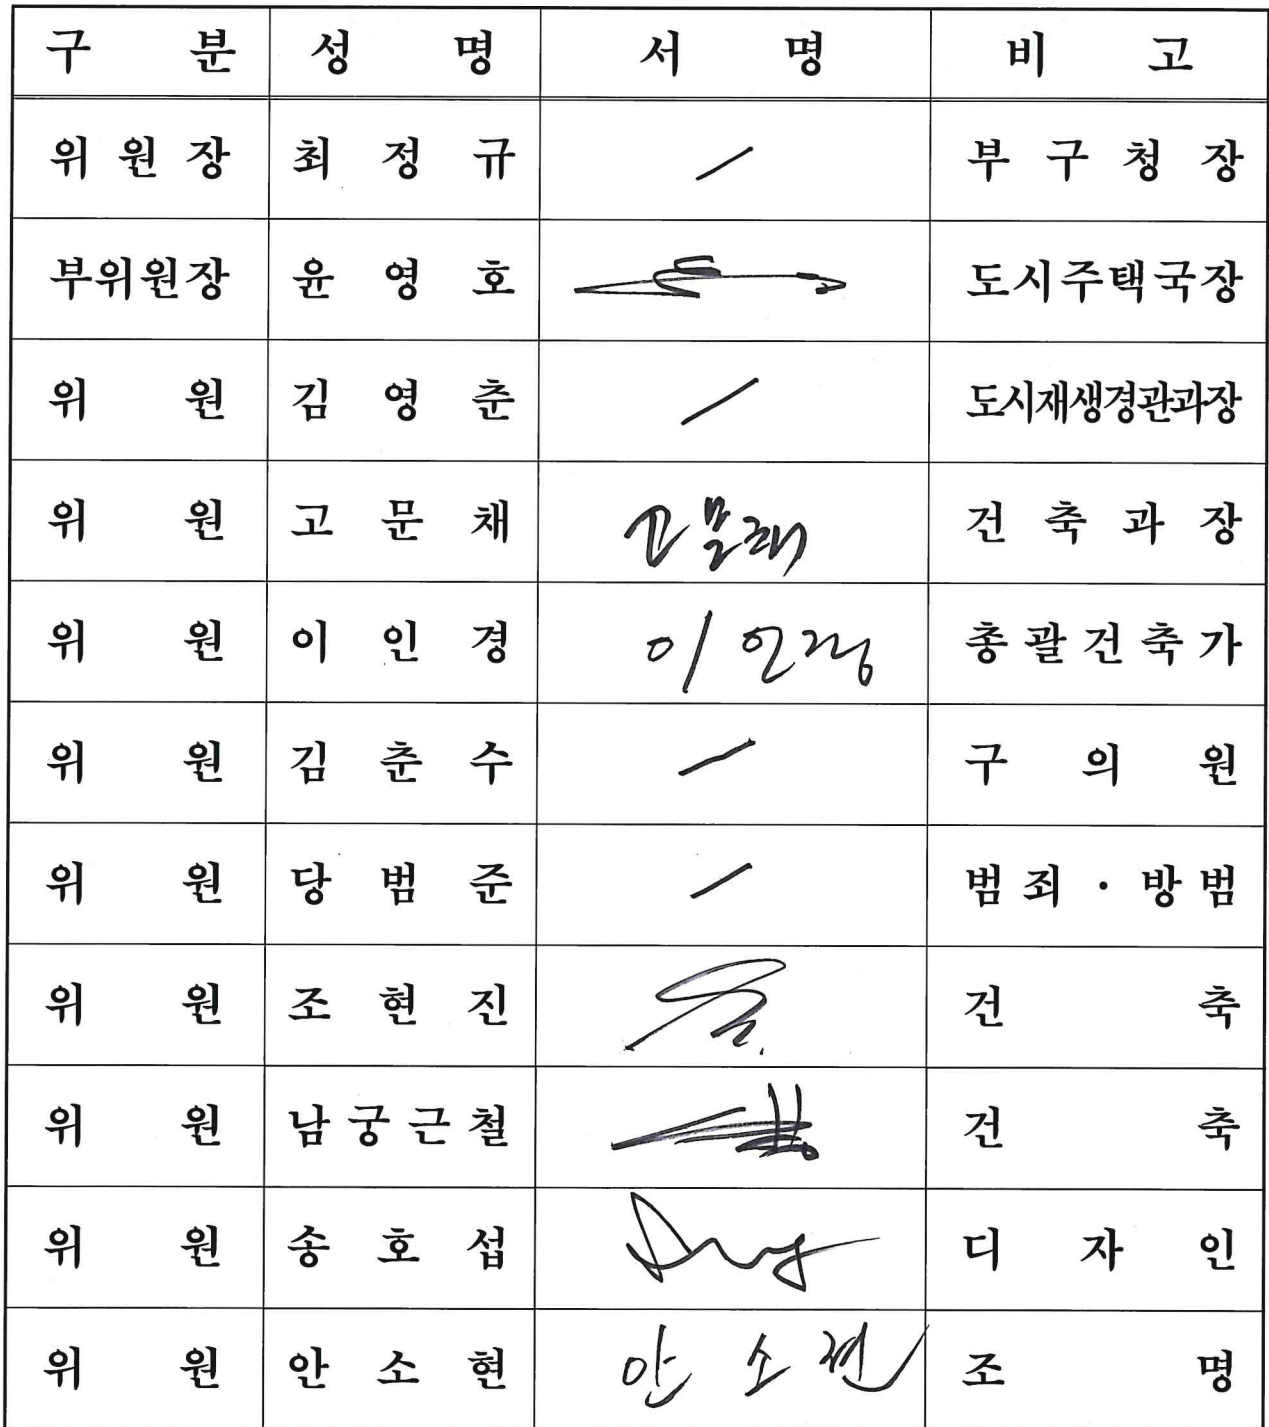 구 분 성 명 서 명 비 고
위 원 장 최 정 규 부 구 청 장
부위원장 윤 영 호 도시주택국장
위 원 김 영 춘 도시재생경관과장
위 원 고 문 채 고문채 건 축 과 장
위 원 이 인 경 이인경 총 괄 건 축 가
위 원 김 춘 수 구 의 원
위 원 당 범 준 범 죄 · 방 범
위 원 조 현 진 건 축
위 원 남 궁 근 철 건 축
위 원 송 호 섭 디 자 인
위 원 안 소 현 안 소 현 조 명